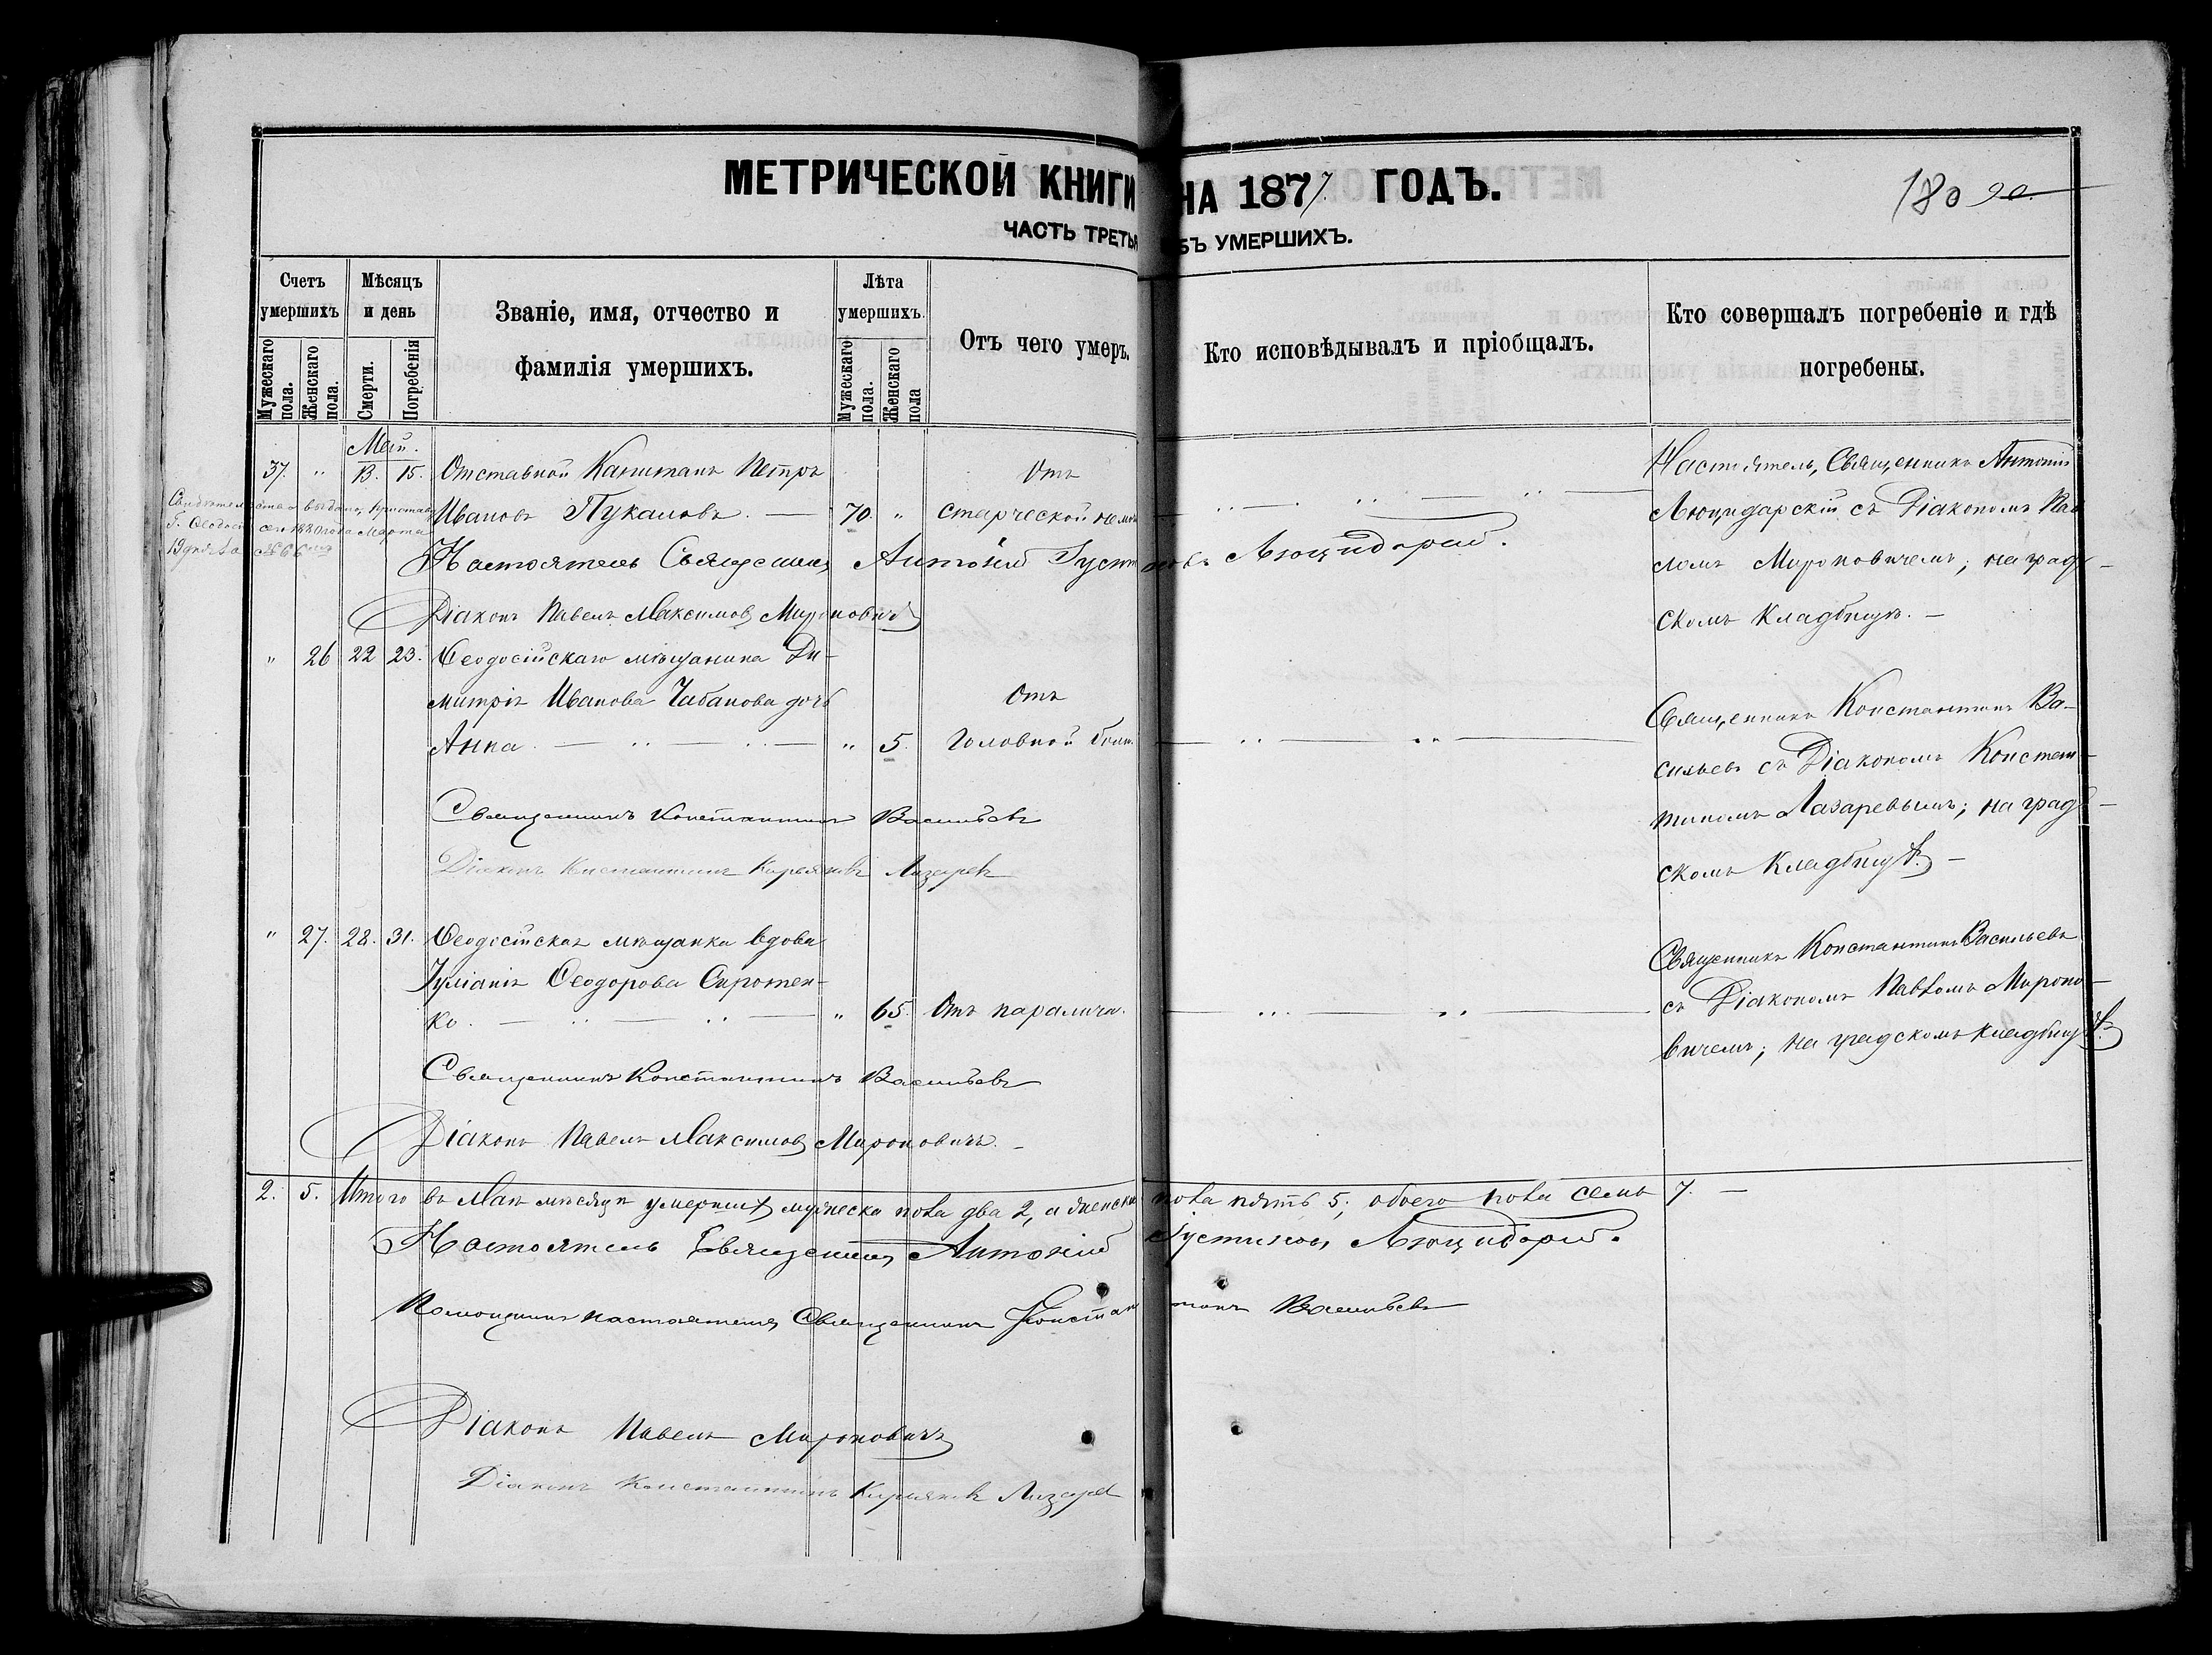 МЕТРИЧЕСКОЙ КНИГИ НА 1877 ГОДЪ.
180 90
ЧАСТЬ ТРЕТЬЯ ОБЪ УМЕРШИХЪ.
Счетъ умершихъ
Мужескаго пола.
Женскаго пола.
Мѣсяцъ и день
Смерти.
Погребенія
Званіе, имя, отчество и
фамилія умершихъ.
Лѣта умершихъ.
Мужескаго пола.
Женскаго пола
Отъ чего умеръ.
Кто исповѣдывалъ и пріобщалъ.
Кто совершалъ погребеніе и гдѣ
погребены.
Май.
37. " 13. 15. Отставной Капитанъ Петръ
Ивановъ Пукаловъ. — 70. "
Отъ
старческой немощи
Настоятель, Священникъ Антоній
Люцидарскій съ Діакономъ Пав
ломъ Мироновичемъ; на град-
скомъ Кладбищѣ. —
выдано
1880 года Марта
19 дня за № 66
Настоятель Священникъ Антоній Густиновъ Люцидарскій.
Діаконъ Павелъ Максимовъ Мироновичъ
" 26 22 23. Ѳеодосійскаго мѣщанина Ди-
митрія Иванова Чабанова дочь
Анна. — " 5.
Отъ
Головной боли.
Священникъ Константинъ Ва-
сильевъ съ Діакономъ Констан-
тиномъ Лазаревымъ; на град-
скомъ Кладбищѣ. —
Священникъ Константинъ Васильевъ
Діаконъ Константинъ Лазаревъ
" 27. 28. 31. Ѳеодосійская мѣщанка вдова
Іуліанія Ѳеодорова Сиротен-
ко. — " 65. Отъ паралича.
Священникъ Константинъ Васильевъ
съ Діакономъ Павломъ Мироно-
вичемъ; на градскомъ кладбищѣ.
Священникъ Константинъ Васильевъ
Діаконъ Павелъ Максимовъ Мироновичъ. —
2. 5. Итого въ Маѣ мѣсяцѣ умершихъ мужеска пола два 2, а женска пола пять 5; обоего пола семь 7. —
Настоятель Священникъ Антоній Густиновъ Люцидарскій.
Помощникъ настоятеля, Священникъ Константинъ Васильевъ
Діаконъ Павелъ Мироновичъ
Діаконъ Константинъ Лазаревъ